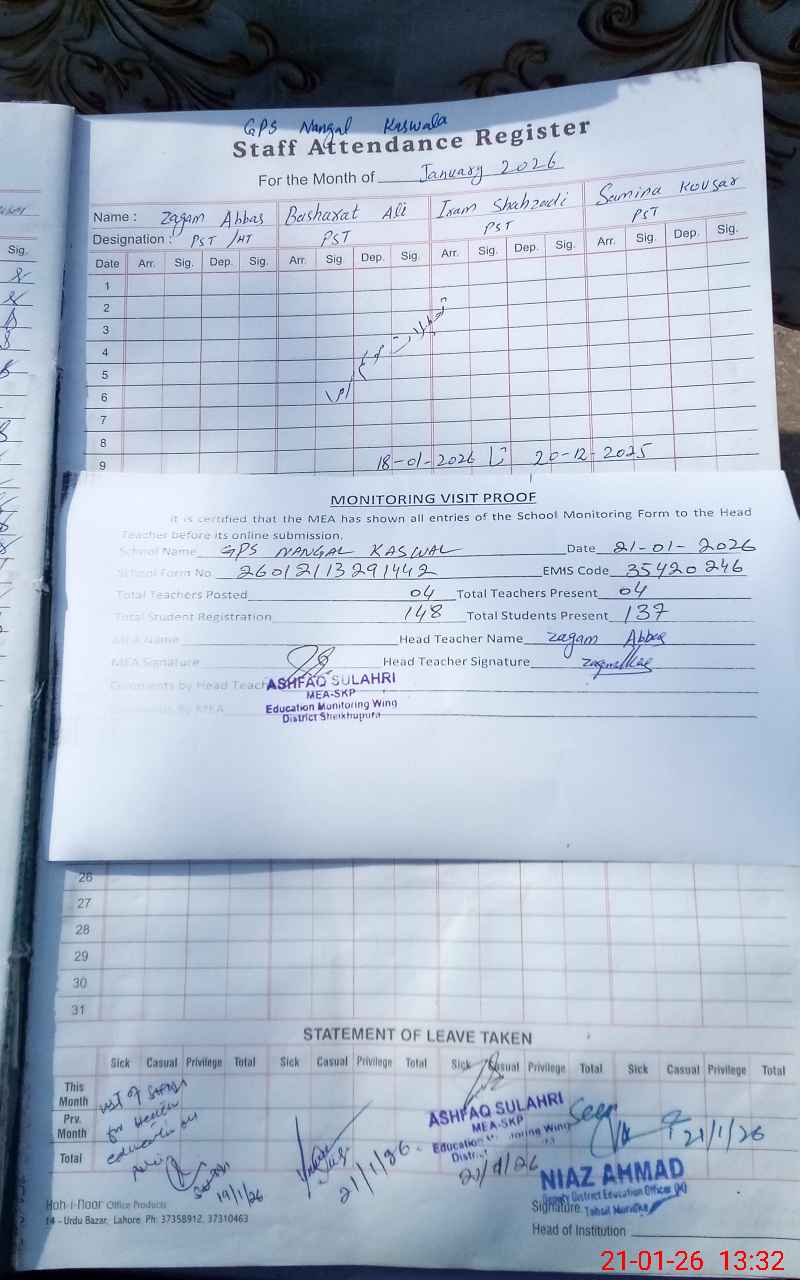 GPS Nangal Kaswala
Staff Attendance Register
For the Month of January 2026
Name : Zagam Abbas Basharat Ali Iram Shahzadi Samina Kousar
Designation : PST /HT PST PST PST
Date Arr. Sig. Dep. Sig. Arr. Sig Dep. Sig. Arr. Sig. Dep. Sig. Arr. Sig. Dep. Sig.
Sig.
1
2
3
4
5
6
7
8
9
18-01-2026 تا 20-12-2025
MONITORING VISIT PROOF
It is certified that the MEA has shown all entries of the School Monitoring Form to the Head
Teacher before its online submission.
School Name GPS NANGAL KASWAL Date 21-01-2026
School Form No. 26012113291442 EMIS Code 35420246
Total Teachers Posted 04 Total Teachers Present 04
Total Student Registration 148 Total Students Present 137
MEA Name Head Teacher Name Zagam Abbas
MEA Signature Head Teacher Signature
Comments by Head Teach
ASHFAQ SULAHRI
MEA-SKP
Education Monitoring Wing
District Sheikhupura
Comments By MEA
26
27
28
29
30
31
STATEMENT OF LEAVE TAKEN
Sick Casual Privilege Total Sick Casual Privilege Total Sick Casual Privilege Total Sick Casual Privilege Total
This Month
Prv. Month
Total
for Health
education
19/1/26
21/1/26
ASHFAQ SULAHRI
MEA-SKP
Education Monitoring Wing
21/1/26
Seen
21/1/26
NIAZ AHMAD
Deputy District Education Officer (M)
Tehsil Muridke
Signature
Head of Institution
Koh-i-Noor Office Products
14 - Urdu Bazar, Lahore. Ph: 37358912, 37310463
21-01-26 13:32